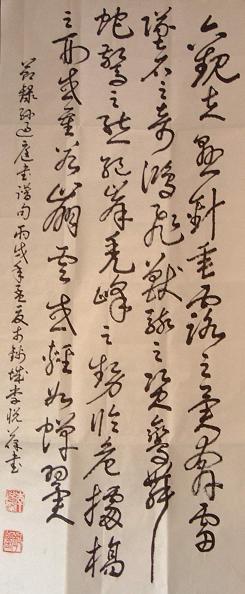 觀夫懸針垂露之異奔雷
墜石之奇鴻飛獸駭之資鸞舞
蛇驚之態絕岸頹峰之勢臨危據槁
之形或重若崩雲或輕如蟬翼
節錄孫過庭書譜句丙戌年夏於城李悅書